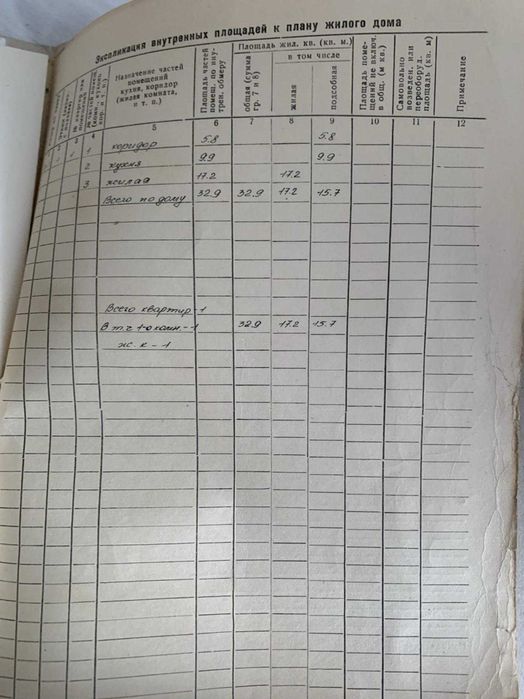 Экспликация внутренних площадей к плану жилого дома
Назначение частей
помещений
кухня, коридор
(жилая комната,
и т. п.)
Площадь частей
помещ. по вну-
трен. обмеру
Площадь жил. кв. (кв. м.)
общая (сумма
гр. 7 и 8)
в том числе
жилая
подсобная
Площадь поме-
щений не включ.
в общ. (м кв.)
Самовольно
возведен. или
переоборуд.
площадь (кв. м)
Примечание
4 5 6 8 9 10 11 12
1 коридор 5.8 5.8
2 кухня 9.9 9.9
3 жилая 17.2 17.2
Всего по дому 32.9 32.9 17.2 15.7
Всего квартир-1
В т.ч 1-о комн.-1 32.9 17.2 15.7
ж.к-1